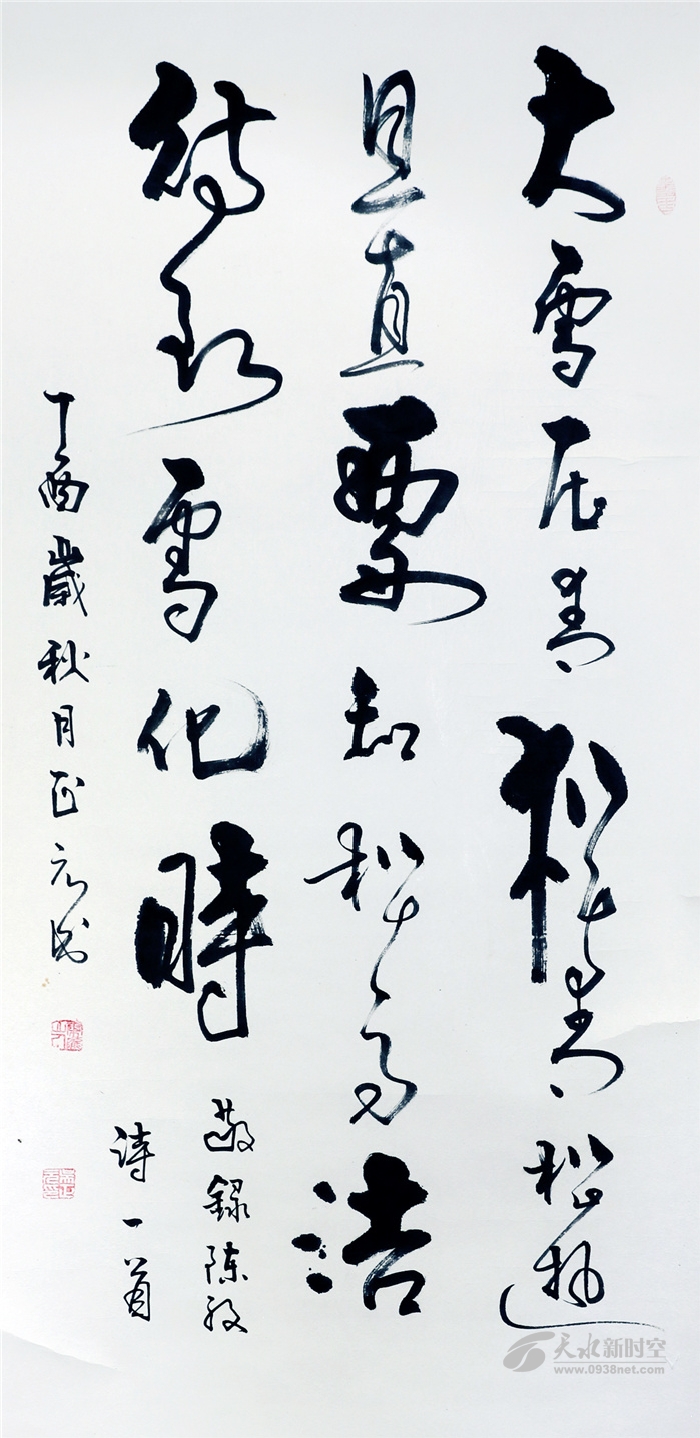 大雪压青松青松挺
且直要知松高洁
待到雪化時
敬録陈毅
诗一首
丁酉歲秋月正元书
天水新时空
www.0938net.com